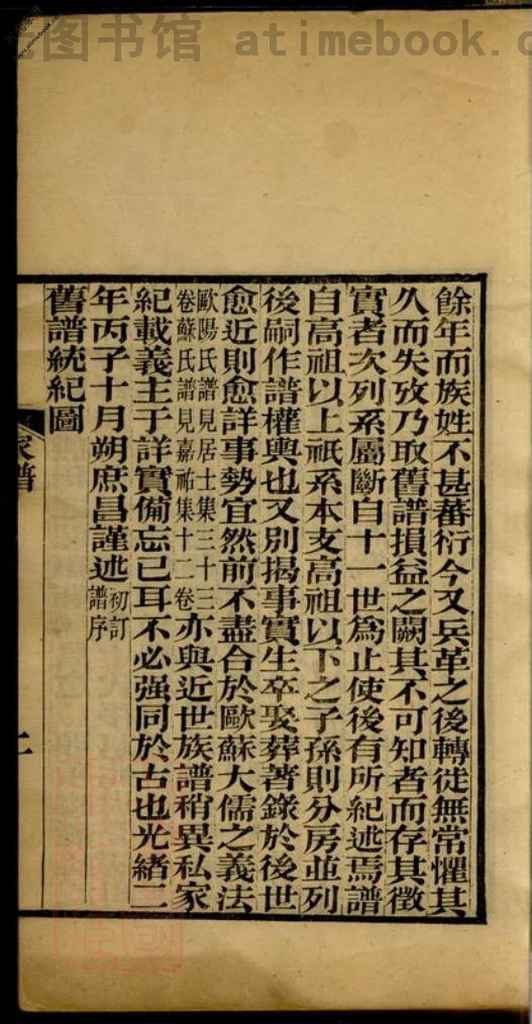 图书馆 atimebook.c
餘年而族姓不甚蕃衍今又兵革之後轉徙無常懼其
久而失攷乃取舊譜損益之闕其不可知者而存其徵
實者次列系屬斷自十一世爲止使後有所紀述焉譜
自高祖以上祇系本支高祖以下之子孫則分房並列
後嗣作譜權輿也又別揭事實生卒娶葬著錄於後世
愈近則愈詳事勢宜然前不盡合於歐蘇大儒之義法
歐陽氏譜見居士集二十三
卷蘇氏譜見嘉祐集十二卷
亦與近世族譜稍異私家
紀載義主于詳實備忘已耳不必强同於古也光緒二
年丙子十月朔庶昌謹述
初訂
譜序
舊譜統紀圖
家譜
二